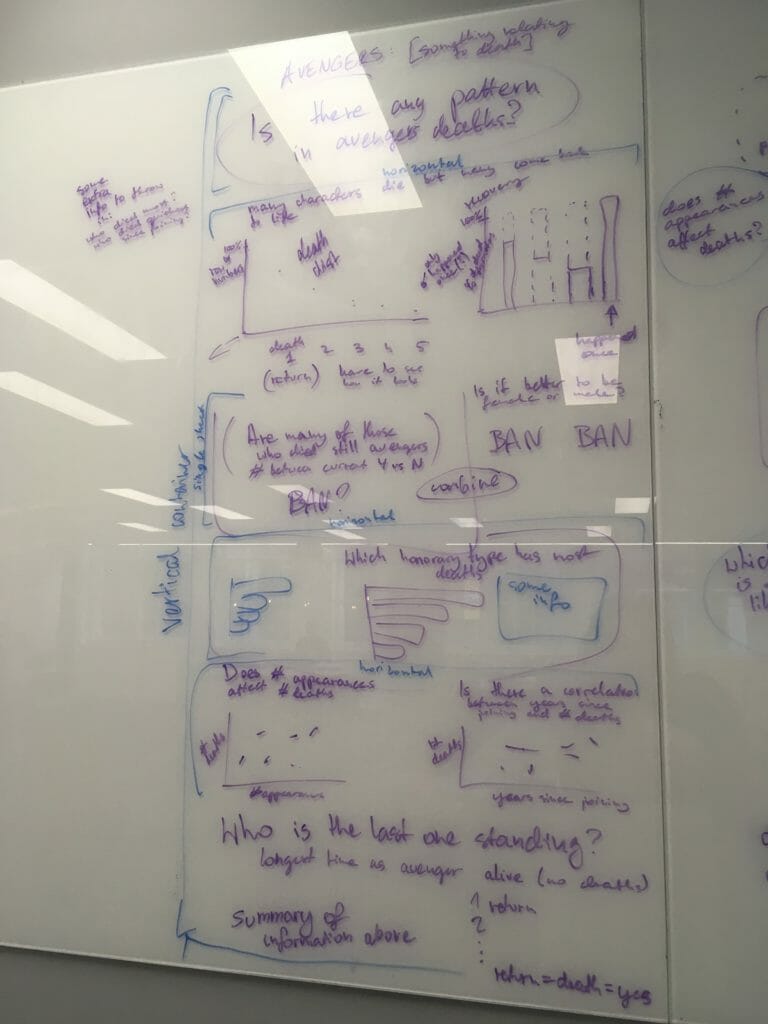 AVENGERS: [something relating
to death]
Is there any pattern
in avengers deaths?
some
extra
info to throw
in:
who died most?
who died quickest
since joining?
horizontal
many characters die but many come back
to life
100%
of
death
dist
death
1 2 3 4 5
(return) have to see
how it looks
recovery
100%
only
happened
once
happened
once
does #
appearances
affect
deaths?
vertical container
single sheet
(Are many of those
who died still avengers
# between current Y vs N)
BAN?
Is it better to be
female or male?
BAN BAN
combine
horizontal
Which honorary type has most
deaths
some
info
which
is
horizontal
Does # appearances
affect # deaths
# deaths
# appearances
Is there a correlation
between years since
joining and # deaths
# deaths
years since joining
Who is the last one standing?
longest time as avenger alive (no deaths)
1 return
2
summary of
information above
return = death = yes